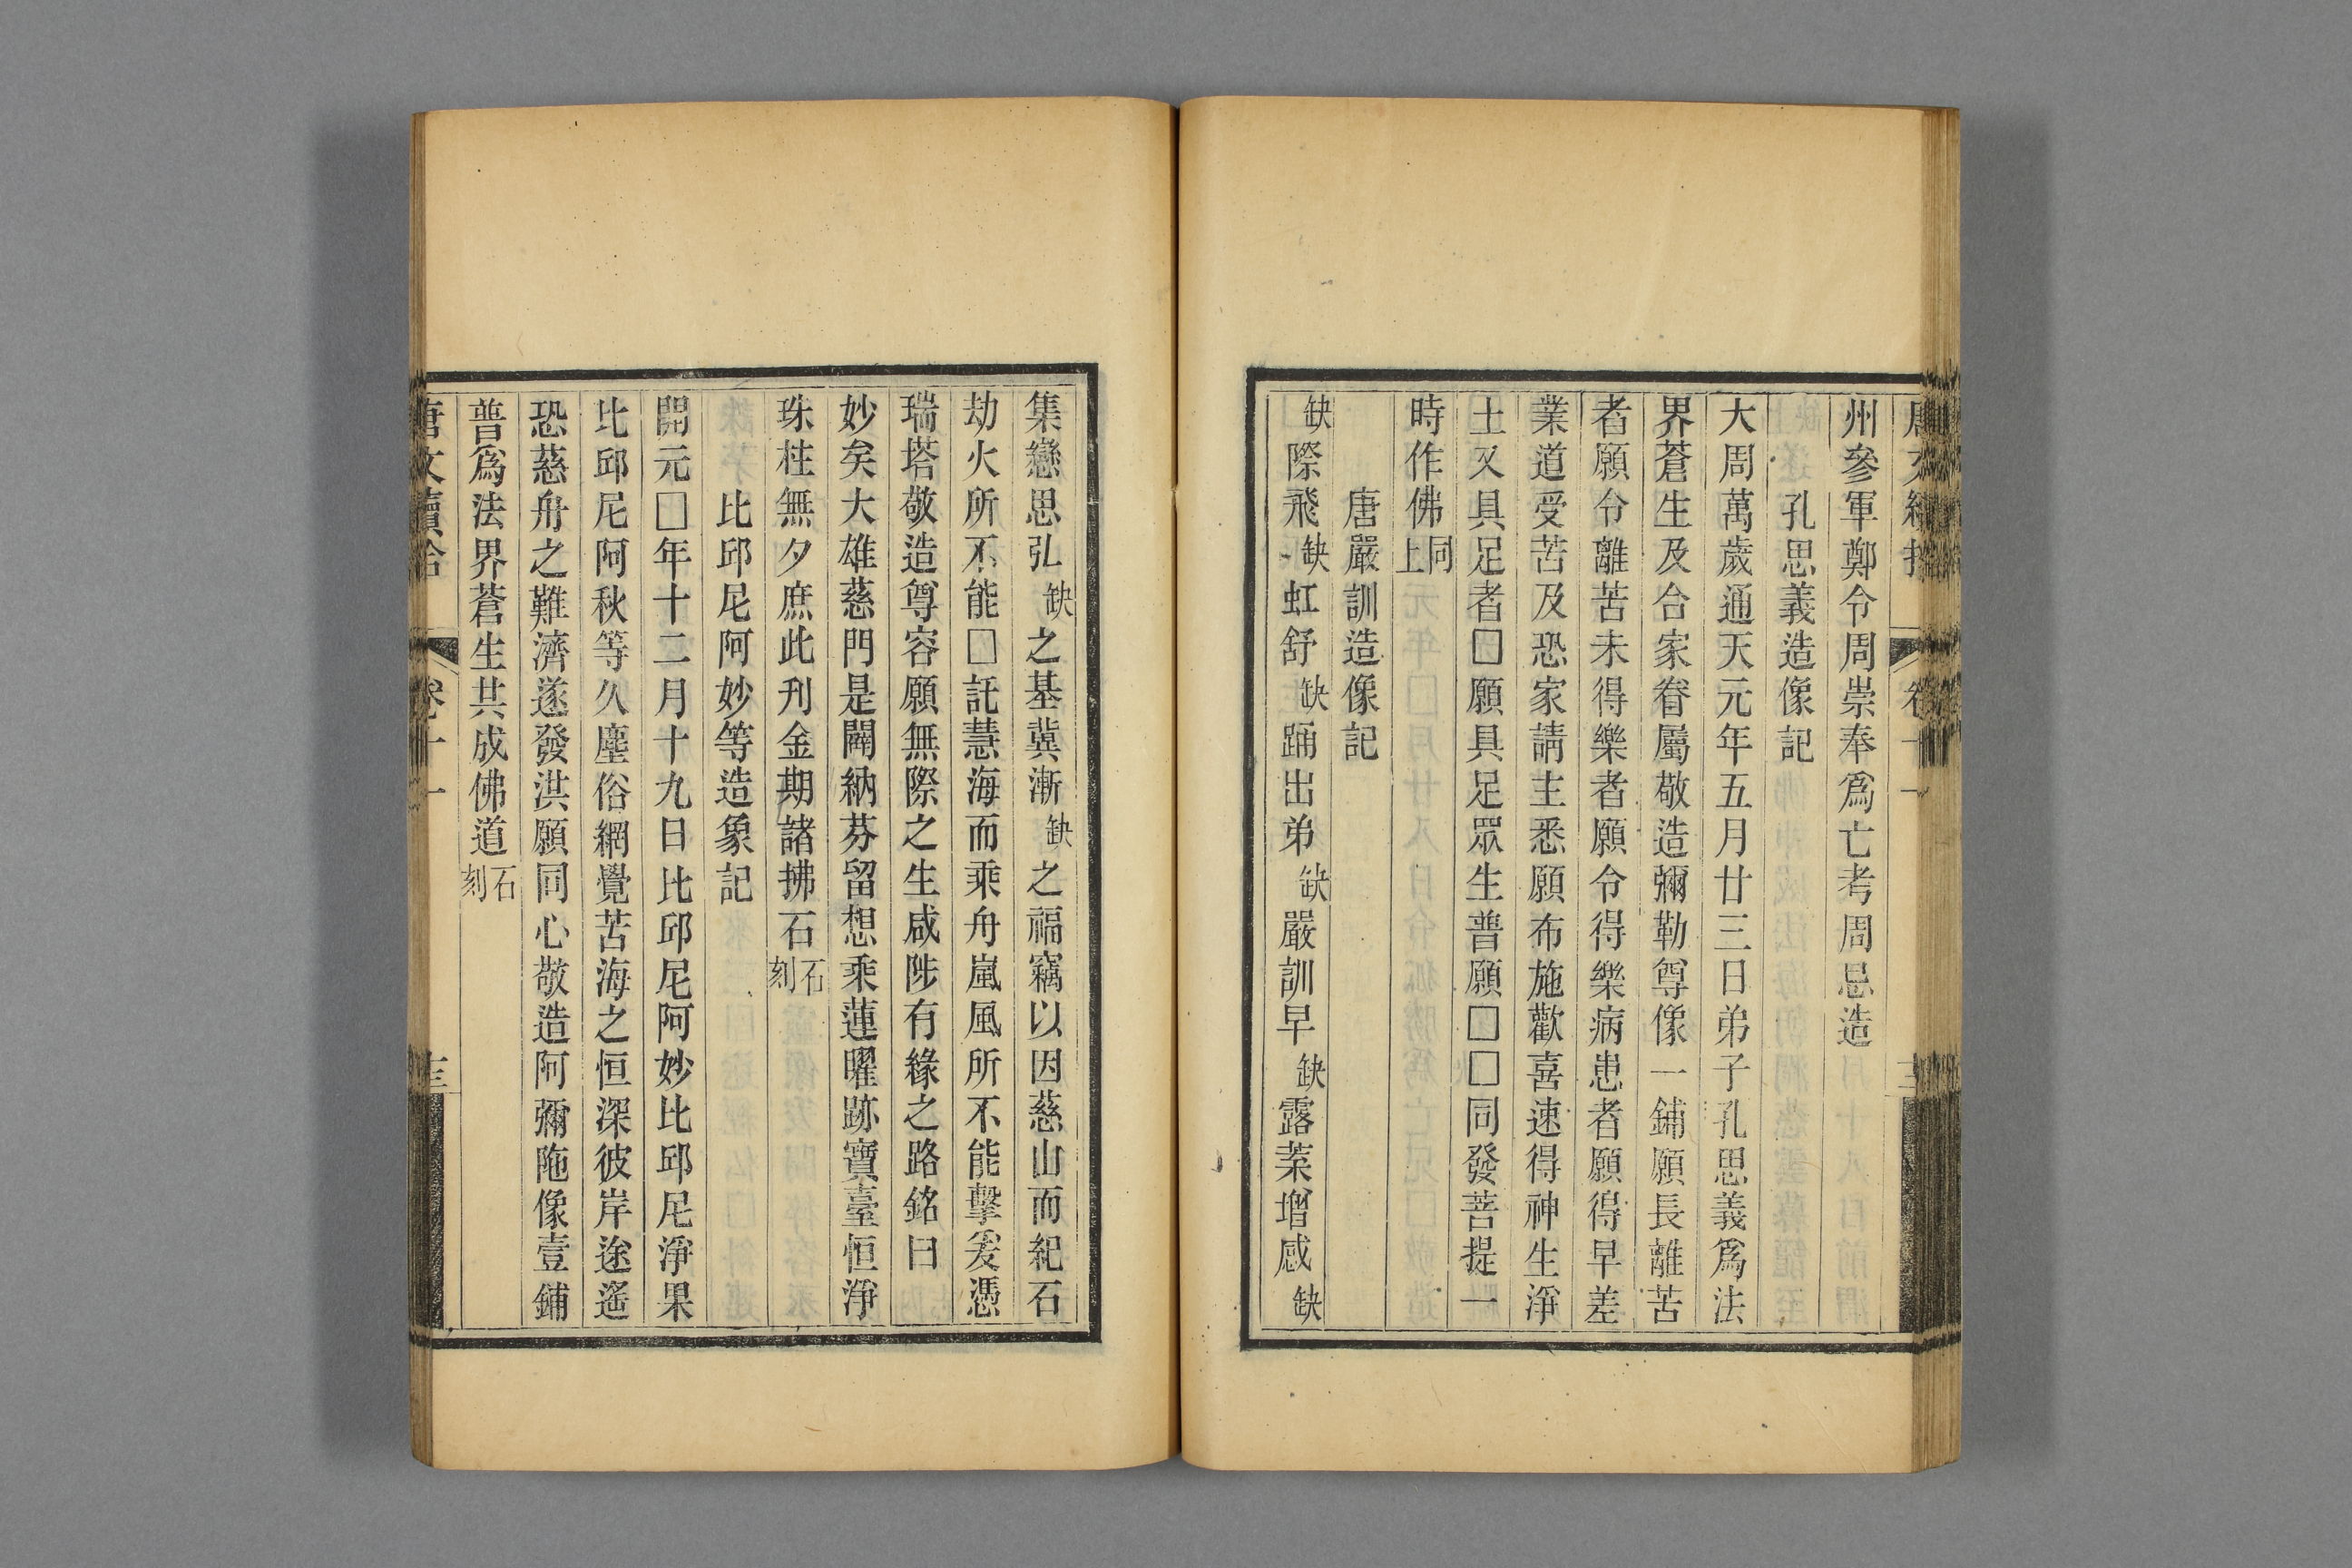 州參軍鄭令周崇奉爲亡考周忌造
孔思義造像記
大周萬歲通天元年五月廿三日弟子孔思義爲法
界蒼生及合家眷屬敬造彌勒尊像一鋪願長離苦
者願令離苦未得樂者願令得樂病患者願得早差
業道受苦及恐家請主悉願布施歡喜速得神生淨
土又具足者□願具足眾生普願□□同發菩提一
時作佛同上
唐嚴訓造像記
缺際飛缺虹舒缺踊出弟缺嚴訓早缺露葉增感缺
集戀思弘缺之基冀漸缺之福竊以因慈山而紀石
劫火所不能□託慧海而乘舟嵐風所不能擊爰憑
瑞塔敬造尊容願無際之生咸陟有緣之路銘曰
妙矣大雄慈門是闢納芬留想乘蓮曜跡寶臺恒淨
珠柱無夕庶此刊金期諸拂石石刻
比邱尼阿妙等造象記
開元□年十二月十九日比邱尼阿妙比邱尼淨果
比邱尼阿秋等久塵俗網覺苦海之恒深彼岸途遙
恐慈舟之難濟遂發洪願同心敬造阿彌陁像壹鋪
普爲法界蒼生共成佛道石刻
唐文續拾 卷十一 十三